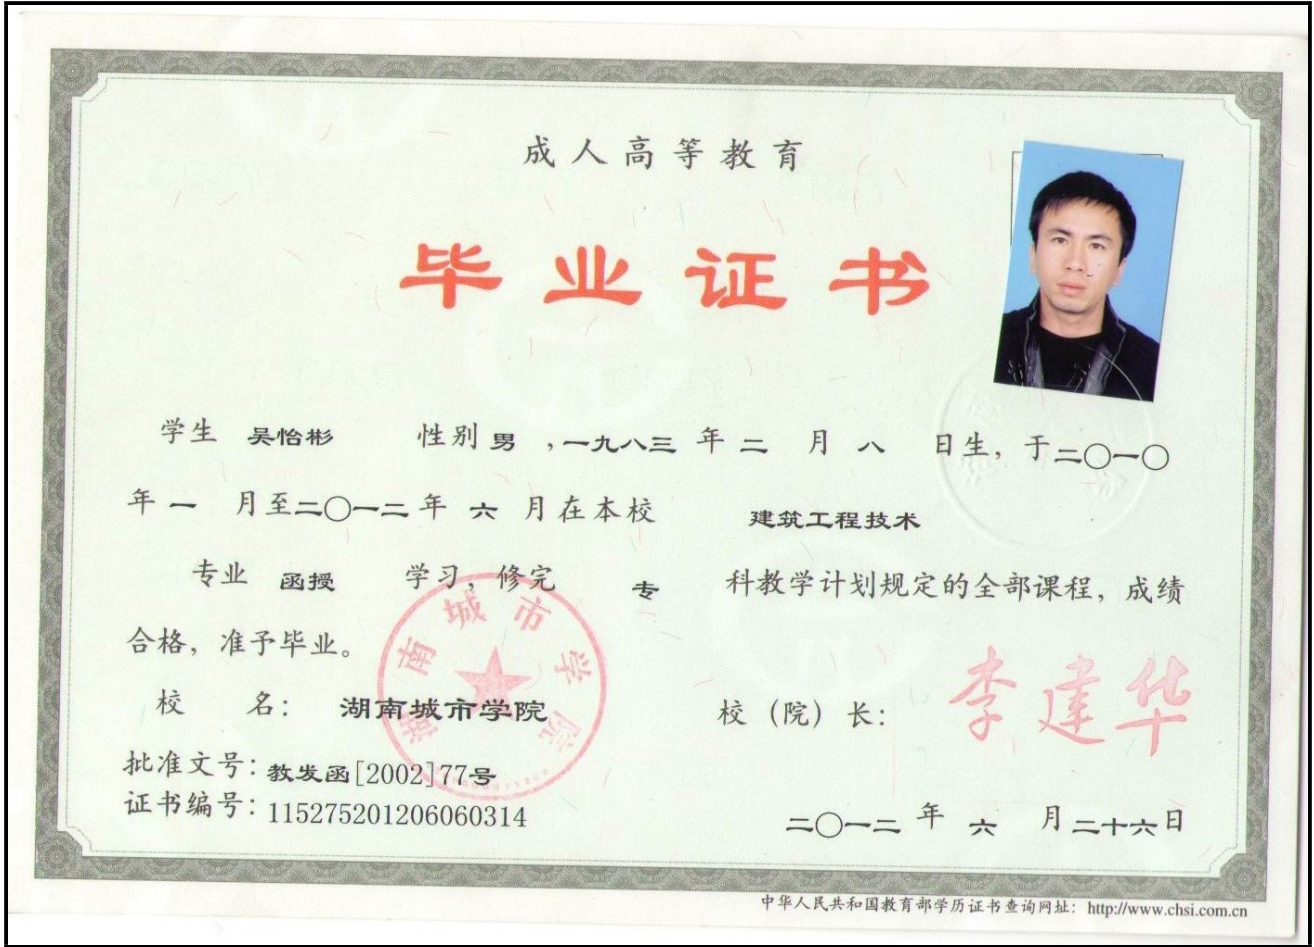 成人高等教育
毕业证书
学生 吴怡彬 性别 男 ,一九八三 年 二 月 八 日生, 于二〇一〇
年 一 月至二〇一二年 六 月在本校 建筑工程技术
专业 函授 学习, 修完 专 科教学计划规定的全部课程, 成绩
合格, 准予毕业。
校 名: 湖南城市学院
校（院）长: 李建华
批准文号: 教发函[2002]77号
证书编号: 115275201206060314
二〇一二 年 六 月 二十六日
湖南城市学院
中华人民共和国教育部学历证书查询网址: http://www.chsi.com.cn